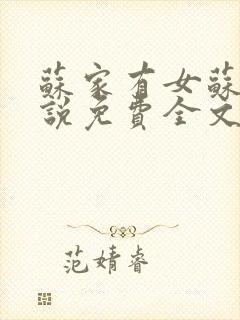 蘇家有女蘇
說免費全文
范婧睿